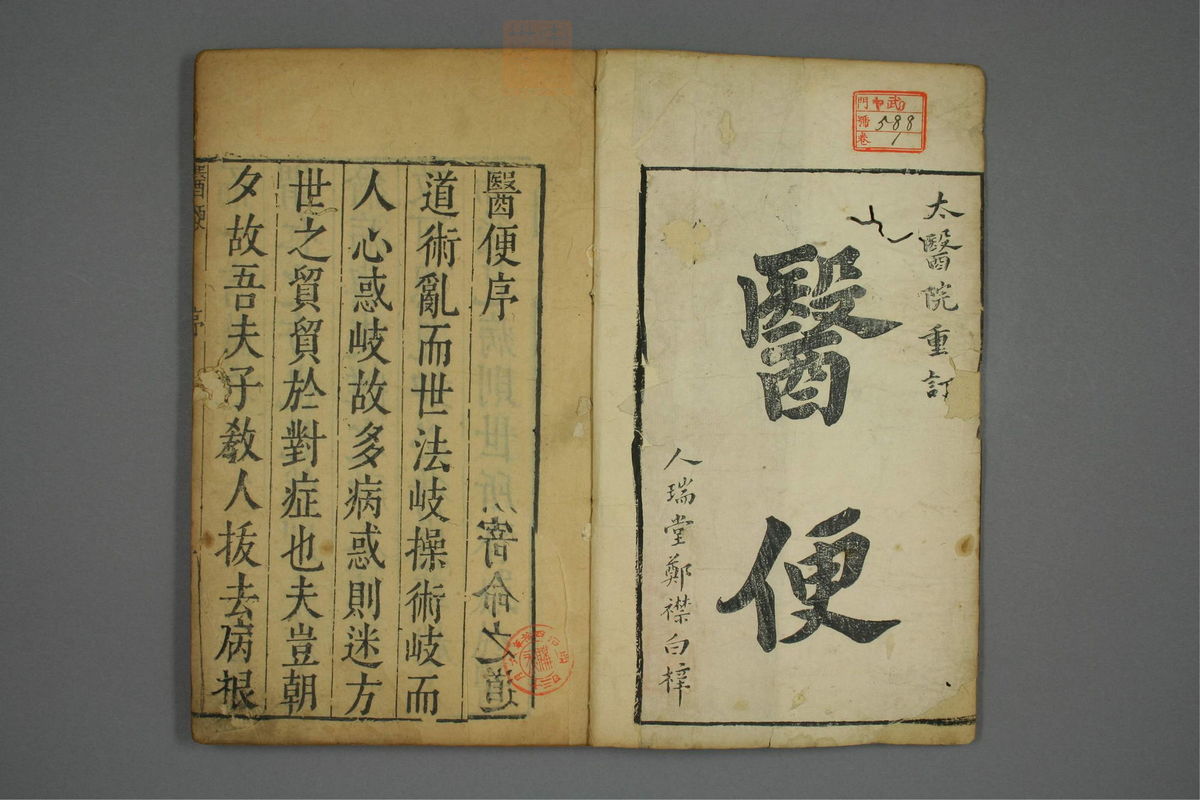 門
號 588
卷 1
太醫院重訂
醫便
人瑞堂鄭襟白梓
醫便序
道術亂而世法岐操術岐而
人心惑岐故多病惑則迷方
世之貿貿於對症也夫豈朝
夕故吾夫子教人拔去病根
醫便 序